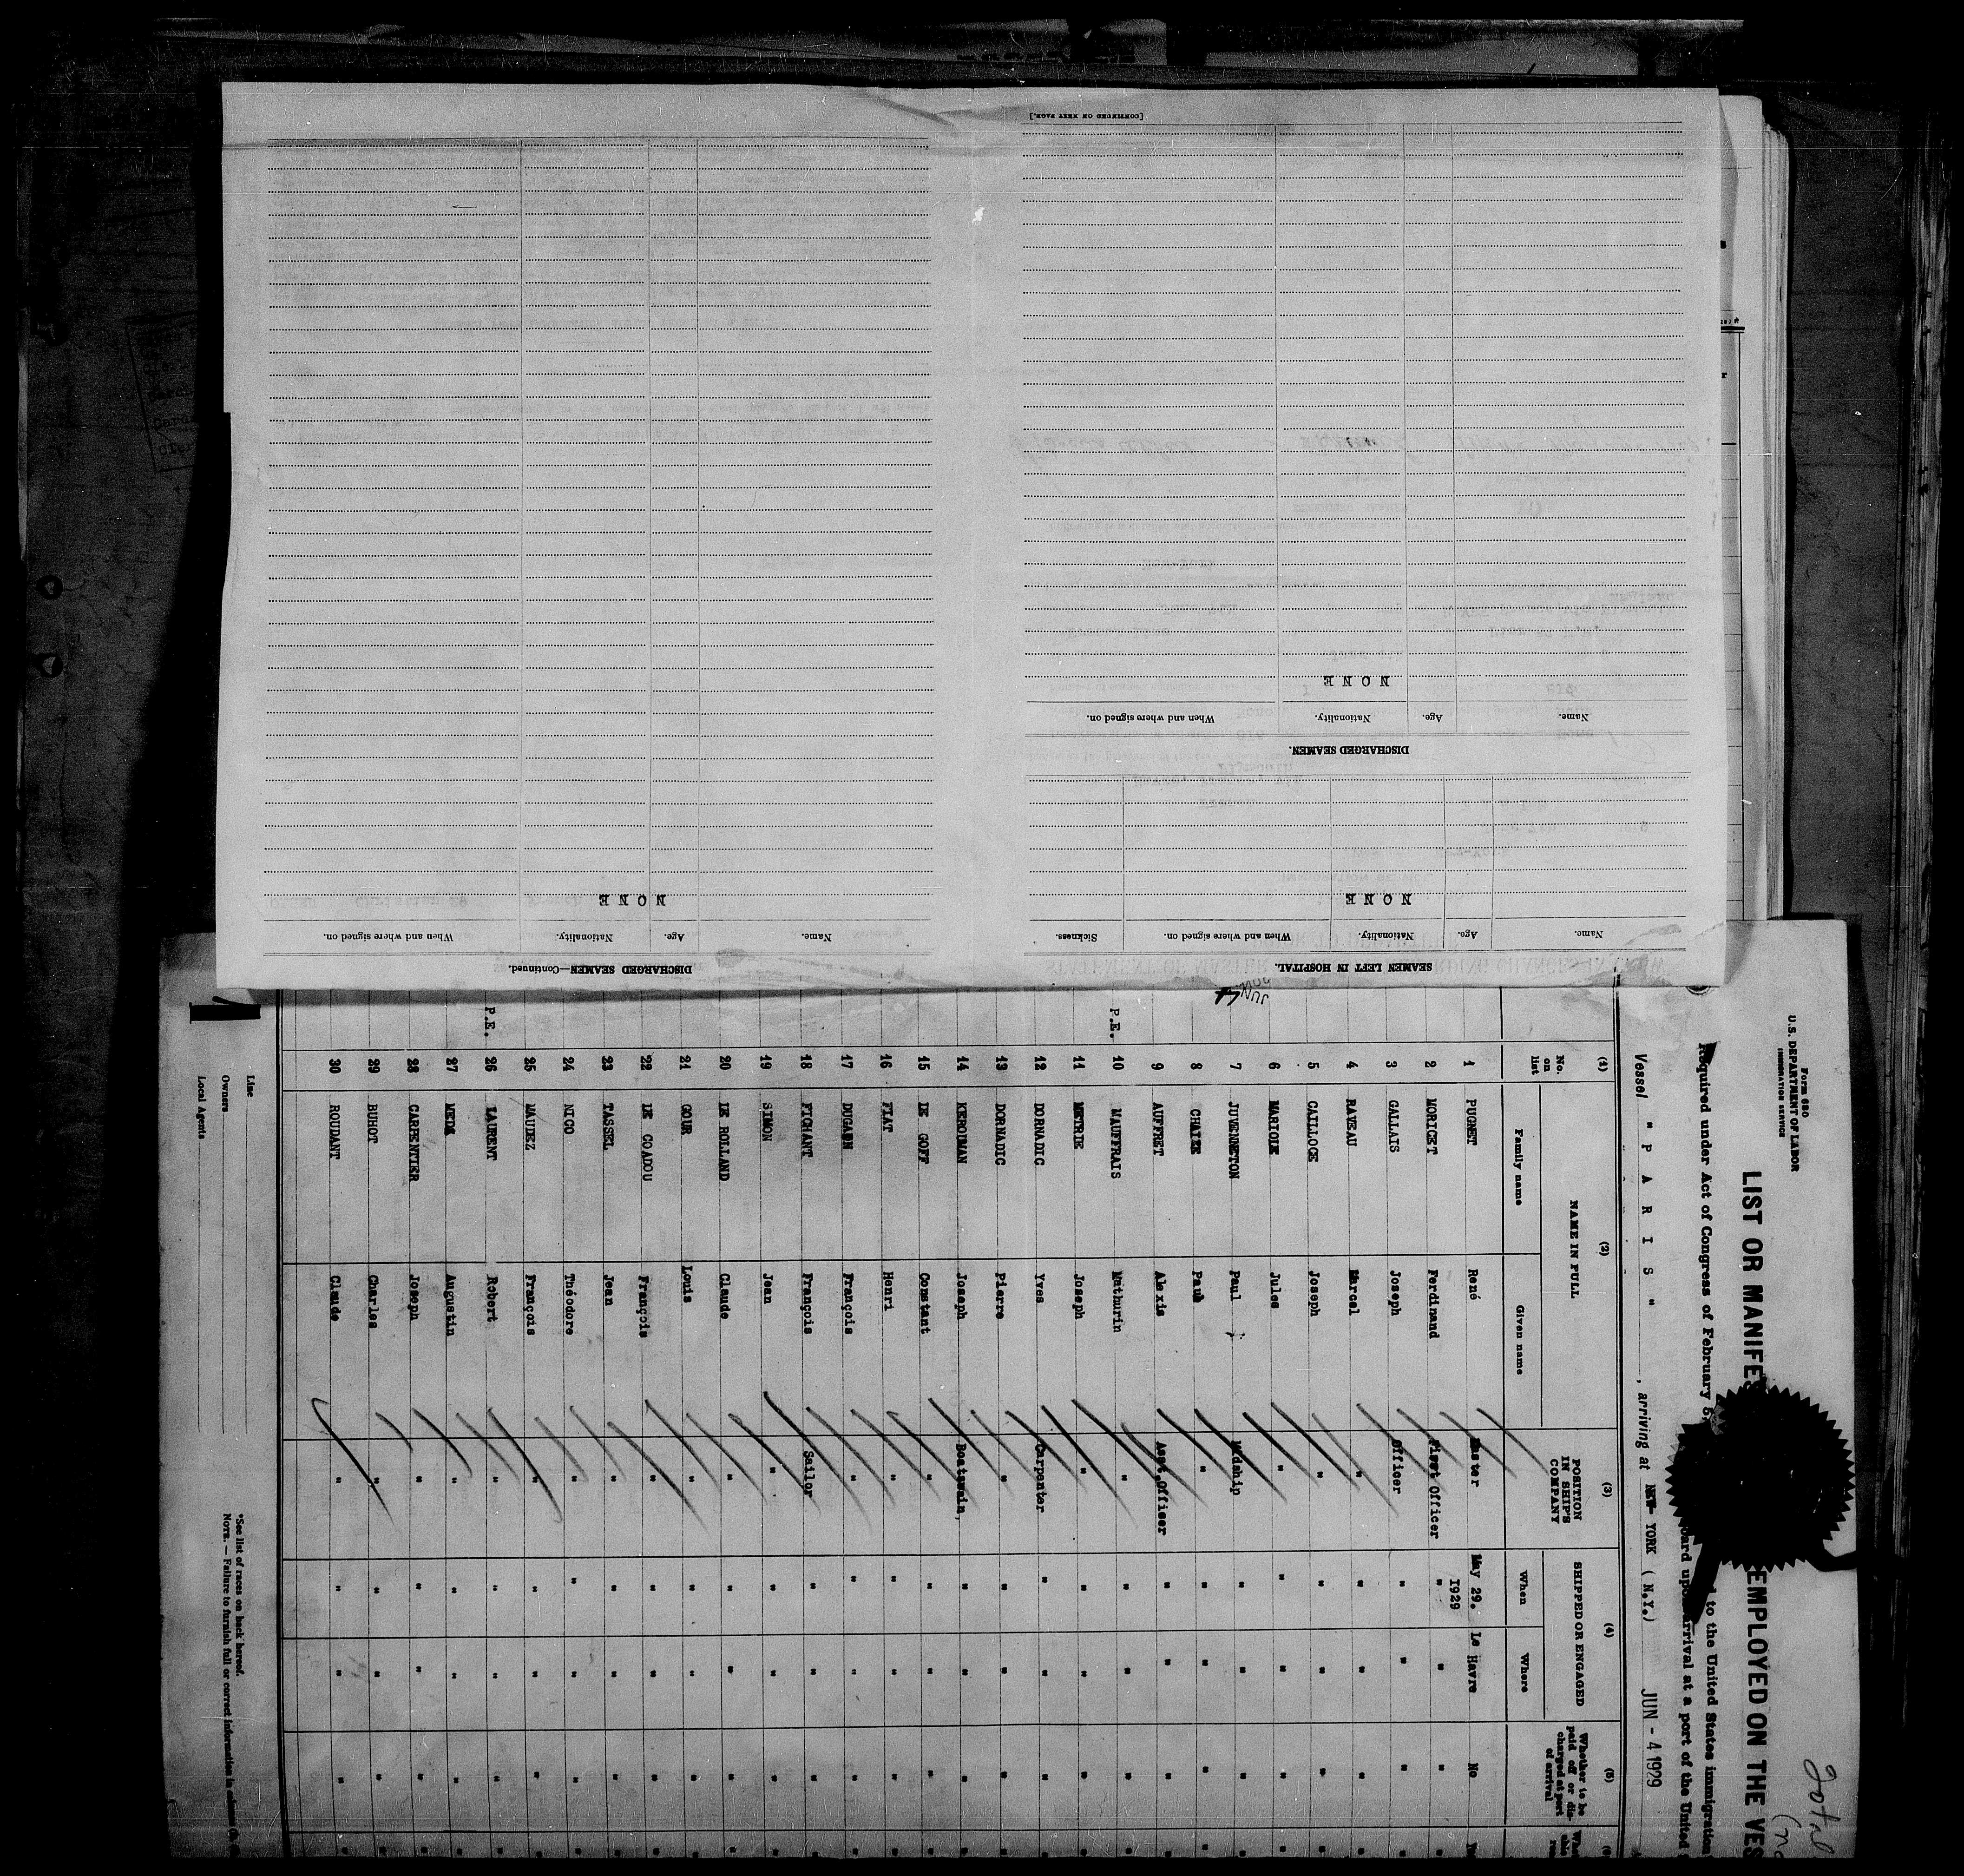 [CONTINUED ON NEXT PAGE.]
SEAMEN LEFT IN HOSPITAL.
Name. Age. Nationality. When and where signed on. Sickness.
NONE
DISCHARGED SEAMEN.
Name. Age. Nationality. When and where signed on.
NONE
DISCHARGED SEAMEN—Continued.
Name. Age. Nationality. When and where signed on.
NONE
Form 680
U.S. DEPARTMENT OF LABOR
IMMIGRATION SERVICE
LIST OR MANIFES EMPLOYED ON THE VES
Required under Act of Congress of February 5, d to the United States immigration
oard upon arrival at a port of the United
Vessel " P A R I S ", arriving at NEW YORK ( N.Y.) JUN - 4 1929
(1) (2) (3) (4) (5)
No. on list
NAME IN FULL
Family name Given name
POSITION IN SHIP'S COMPANY
SHIPPED OR ENGAGED
When Where
Whether to be paid off or discharged at port of arrival
1 PUGNET René Master May 29. 1929 Le Havre No
2 MORICET Ferdinand First Officer " " "
3 GALLAIS Joseph Officer " " "
4 RAVEAU Marcel " " " "
5 CAILLOCE Joseph " " " "
6 MARIOLE Jules " " " "
7 JUVENNETON Paul Midship " " "
8 CHAIZE Paul " " " "
9 AUFFRET Alexis Asst.Officer " " "
P.E. 10 MAUFFRAIS Mathurin " " " "
11 MEYRIE Joseph " " " "
12 DORNADIC Yves Carpenter " " "
13 DORNADIC Pierre " " " "
14 KEROIMAN Joseph Boatswain, " " "
15 LE GOFF Constant " " " "
16 FLAT Henri " " " "
17 DUGAIN François " " " "
18 FICHANT François Sailor " " "
19 SIMON Jean " " " "
20 LE ROLLAND Claude " " " "
21 GOUR Louis " " " "
22 LE COADOU François " " " "
23 TASSEL Jean " " " "
24 NICO Théodore " " " "
25 MAUDEZ François " " " "
P.E. 26 LAURENT Robert " " " "
27 MEDA Augustin " " " "
28 CARPENTIER Joseph " " " "
29 BUHOT Charles " " " "
30 ROUDANT Claude " " " "
Line
Owners
Local Agents
*See list of races on back hereof.
NOTE. — Failure to furnish full or correct information in